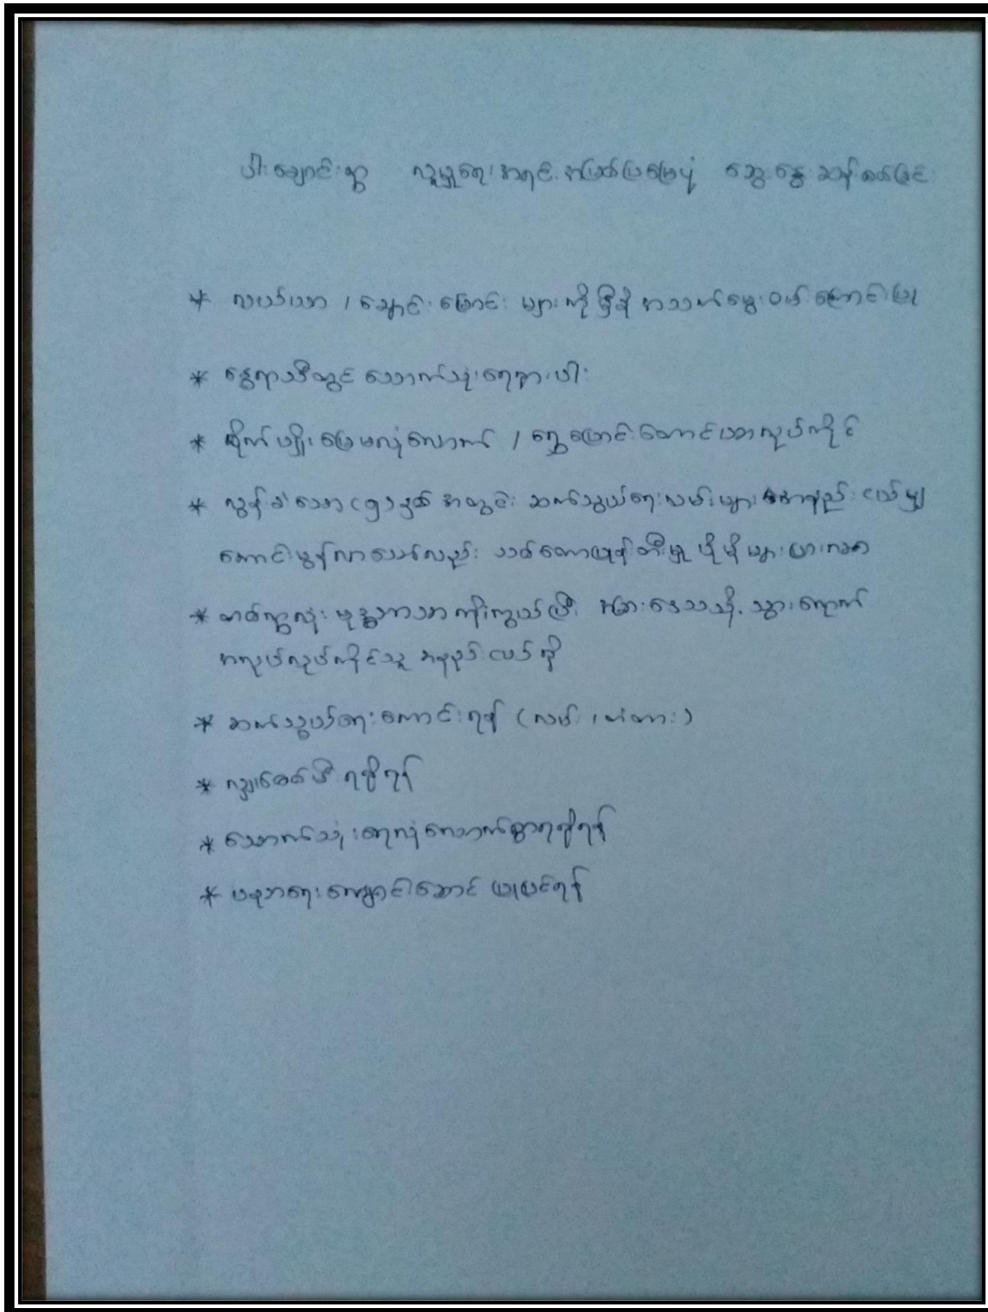 ဝါးချောင်းရွာ လူမှုရေးအရင်းအမြစ်ပြမြေပုံ ဆွေးနွေးဆန်းစစ်ခြင်း
* လယ်ယာ / ချောင်းမြောင်း များကိုမှီခို အသက်မွေးဝမ်းကျောင်းပြု
* နွေရာသီတွင် သောက်သုံးရေရှားပါး
* စိုက်ပျိုးမြေမလုံလောက် / ရွှေ့ပြောင်းတောင်ယာလုပ်ကိုင်
* လွန်ခဲ့သော (၅) နှစ် အတွင်း ဆက်သွယ်ရေးလမ်းများ အနည်းငယ်မျှ
ကောင်းမွန်လာသော်လည်း သစ်တောပြုန်းတီးမှု ပိုမိုများပြားလာ
* တစ်ရွာလုံး ဗုဒ္ဓဘာသာ ကိုးကွယ်ပြီး အခြားဒေသသို့ သွားရောက်
အလုပ်လုပ်ကိုင်သူ အနည်းငယ်ရှိ
* ဆက်သွယ်ရေးကောင်းရန် (လမ်း၊ တံတား)
* လျှပ်စစ်မီး ရရှိရန်
* သောက်သုံးရေလုံလောက်စွာရရှိရန်
* ပညာရေးကျောင်းဆောင် ပြုပြင်ရန်